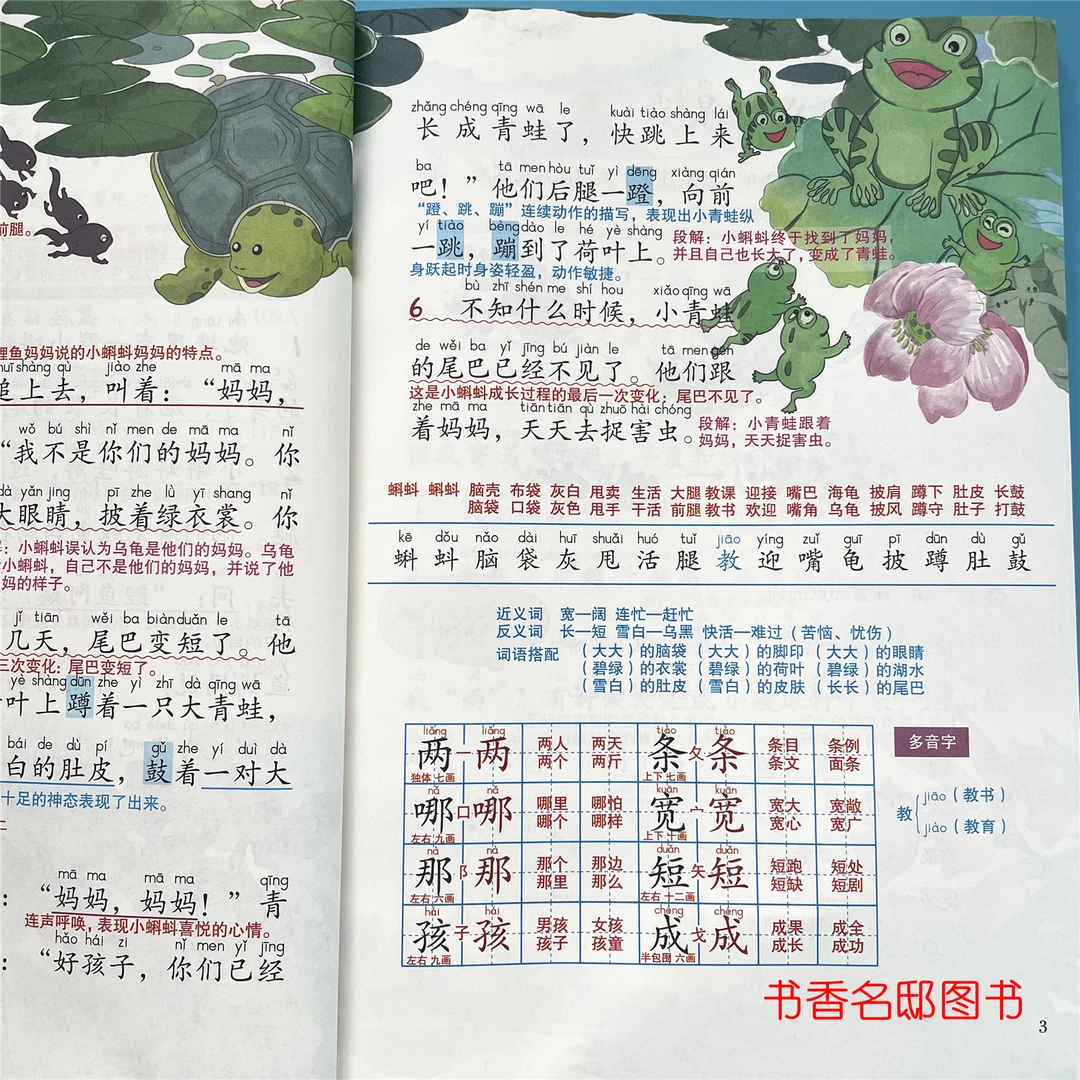 前腿。
鲤鱼妈妈说的小蝌蚪妈妈的特点。
shàng qù jiào zhe mā ma
追上去，叫着：“妈妈，
wǒ bú shì nǐ men de mā ma nǐ
“我不是你们的妈妈。你
dà yǎn jing pī zhe lǜ yī shang nǐ
大眼睛，披着绿衣裳。你
：小蝌蚪误认为乌龟是他们的妈妈。乌龟
小蝌蚪，自己不是他们的妈妈，并说了他
妈的样子。
jǐ tiān wěi ba biàn duǎn le tā
几天，尾巴变短了。他
三次变化：尾巴变短了。
yè shàng dūn zhe yì zhī dà qīng wā
叶上蹲着一只大青蛙，
bái de dù pí gǔ zhe yí duì dà
白的肚皮，鼓着一对大
十足的神态表现了出来。
mā ma mā ma qīng
：“妈妈，妈妈！”青
连声呼唤，表现小蝌蚪喜悦的心情。
hǎo hái zi nǐ men yǐ jīng
：“好孩子，你们已经
zhǎng chéng qīng wā le kuài tiào shàng lái
长成青蛙了，快跳上来
ba tā men hòu tuǐ yì dēng xiàng qián
吧！”他们后腿一蹬，向前
“蹬、跳、蹦”连续动作的描写，表现出小青蛙纵
yí tiào bèng dào le hé yè shàng
一跳，蹦到了荷叶上。
段解：小蝌蚪终于找到了妈妈，
并且自己也长大了，变成了青蛙。
身跃起时身姿轻盈，动作敏捷。
bù zhī shén me shí hou xiǎo qīng wā
6 不知什么时候，小青蛙
de wěi ba yǐ jīng bú jiàn le tā men gēn
的尾巴已经不见了。他们跟
这是小蝌蚪成长过程的最后一次变化：尾巴不见了。
zhe mā ma tiān tiān qù zhuō hài chóng
着妈妈，天天去捉害虫。
段解：小青蛙跟着
妈妈，天天捉害虫。
蝌蚪 蝌蚪 脑壳 布袋 灰白 甩卖 生活 大腿 教课 迎接 嘴巴 海龟 披肩 蹲下 肚皮 长鼓
脑袋 口袋 灰色 甩手 干活 前腿 教书 欢迎 嘴角 乌龟 披风 蹲守 肚子 打鼓
kē dǒu nǎo dài huī shuǎi huó tuǐ jiāo yíng zuǐ guī pī dūn dù gǔ
蝌 蚪 脑 袋 灰 甩 活 腿 教 迎 嘴 龟 披 蹲 肚 鼓
近义词 宽—阔 连忙—赶忙
反义词 长—短 雪白—乌黑 快活—难过（苦恼、忧伤）
词语搭配 （大大）的脑袋（大大）的脚印（大大）的眼睛
（碧绿）的衣裳（碧绿）的荷叶（碧绿）的湖水
（雪白）的肚皮（雪白）的皮肤（长长）的尾巴
liǎng liǎng tiáo tiáo
两 一 两 两人 两天 条 夂 条 条目 条例
两个 两斤 条文 面条
独体 七画 上下 七画
nǎ nǎ kuān kuān
哪 口 哪 哪里 哪怕 宽 宀 宽 宽大 宽敞
哪个 哪样 宽心 宽广
左右 九画 上下 十画
nà nà duǎn duǎn
那 阝 那 那个 那边 短 矢 短 短跑 短处
那里 那么 短缺 短剧
左右 六画 左右 十二画
hái hái chéng chéng
孩 子 孩 男孩 女孩 成 戈 成 成果 成全
孩子 孩童 成长 成功
左右 九画 半包围 六画
多音字
jiāo（教书）
教
jiào（教育）
书香名邸图书
3